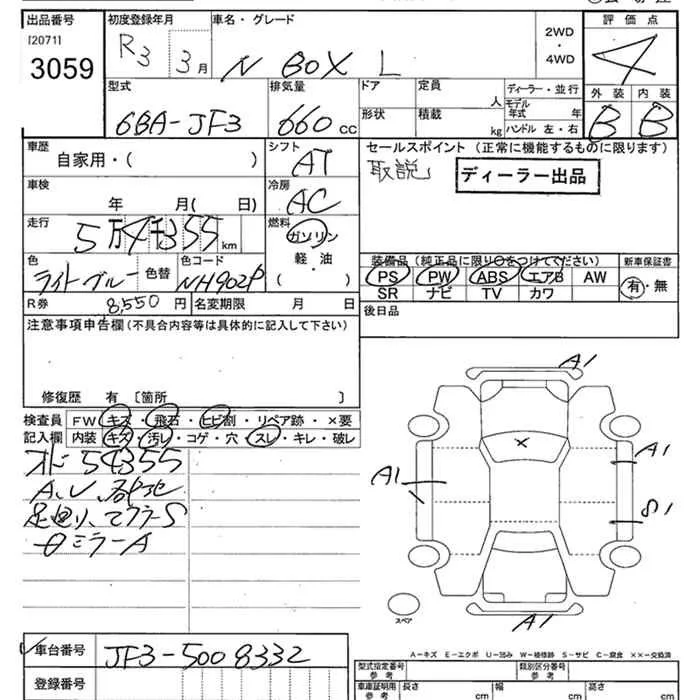 出品番号 初度登録年月 車名・グレード 2WD・4WD 評価点
[20711]
3059 R3 3月 N BOX L 4
型式 排気量 ドア 定員 人 ディーラー・並行 外装 内装
6BA-JF3 660 CC 形状 積載 kg モデル年式 年 ハンドル 左・右 B B
車歴 シフト セールスポイント (正常に機能するものに限ります)
自家用・( ) AT 取説 ディーラー出品
車検 年 月( 日) 冷房 AC
走行 5万4千355km 燃料 ガソリン 軽・油 ( )
装備品(純正品に限り○をつけてください) 新車保証書
色 ライトブルー 色替 色コード NH902P
PS PW ABS エアB AW 有・無
SR ナビ TV カワ
R券 8,550円 名変期限 月 日
後日品
注意事項申告欄(不具合内容等は具体的に記入して下さい)
修復歴 有 〔箇所 〕
検査員 FW キズ・飛石・ヒビ割・リペア跡・×要
記入欄 内装 キズ・汚レ・コゲ・穴・スレ・キレ・破レ
オドー54355
A、U、
足回り、マフラーS
ミラーA
A1
A1
A1
S1
A1
スペア
A-キズ E-エクボ U-凹み W-補修跡 S-サビ C-腐食 ××-交換済
車台番号 JF3-5008332
登録番号
型式指定番号 参考 類別区分番号 参考
車庫証明用 参考 長さ cm 幅 cm 高さ cm